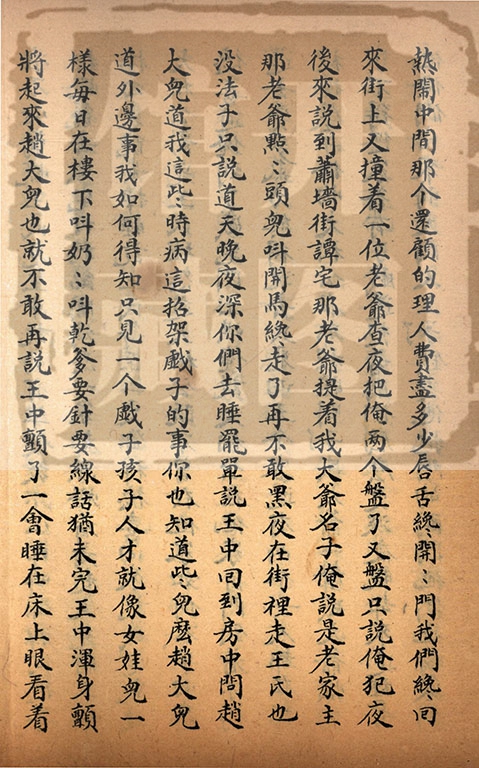 熱鬧中間那个還顧的理人費盡多少唇舌纔〻開〻門我們纔〻回
來街上又撞着一位老爺查夜把俺两个盤了又盤只說俺犯夜
後來說到蕭墻街譚宅那老爺提着我大爺名子俺說是老家主
那老爺點〻頭兒呌開馬纔走了再不敢黑夜在街裡走王氏也
没法子只說道天晚夜深你們去睡罷單說王中回到房中問趙
大兒道我這些〻時病這招架戱子的事你也知道些〻兒麽趙大兒
道外邊事我如何得知只見一个戱子孩子人才就像女娃兒一
樣每日在樓下呌奶〻呌乾爹要針要線話猶未完王中渾身顫
將起來趙大兒也就不敢再說王中顫了一會睡在床上眼看着